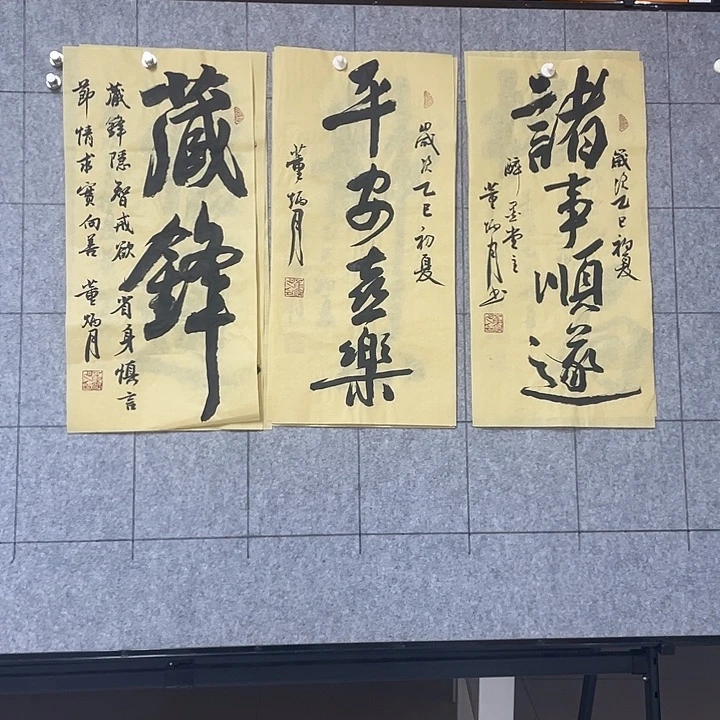 歲次乙巳初夏
諸事順遂
醉墨堂主
董炳月书
歲次乙巳初夏
平安喜樂
董炳月
藏鋒
藏鋒隱智戒欲省身慎言
節情求實向善 董炳月